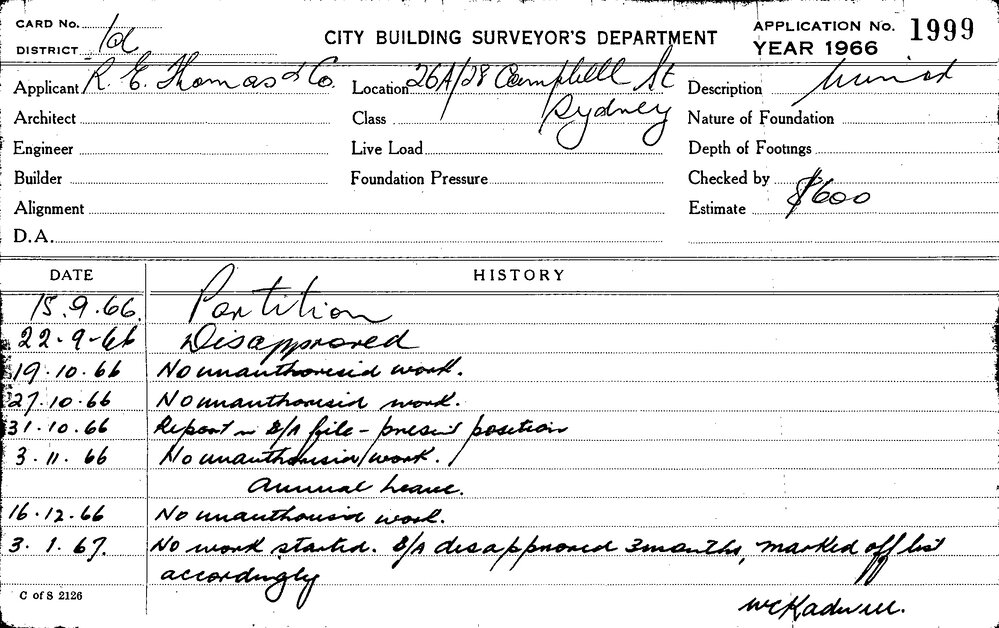 CARD No.
DISTRICT 1d
CITY BUILDING SURVEYOR'S DEPARTMENT
APPLICATION No. 1999
YEAR 1966
Applicant R. E. Thomas & Co. Location 26A/28 Campbell St Description
Architect Class Sydney Nature of Foundation
Engineer Live Load Depth of Footings
Builder Foundation Pressure Checked by
Alignment Estimate $600
D.A.
DATE HISTORY
15.9.66. Partition
22-9-66 Disapproved
19.10.66 No unauthorised work.
27.10.66 No unauthorised work.
31.10.66 Report on B/A file - present position
3.11.66 No unauthorised work.
Annual Leave.
16.12.66 No unauthorised work.
3.1.67. No work started. B/A disapproved 3months, marked off list
accordingly
C of S 2126